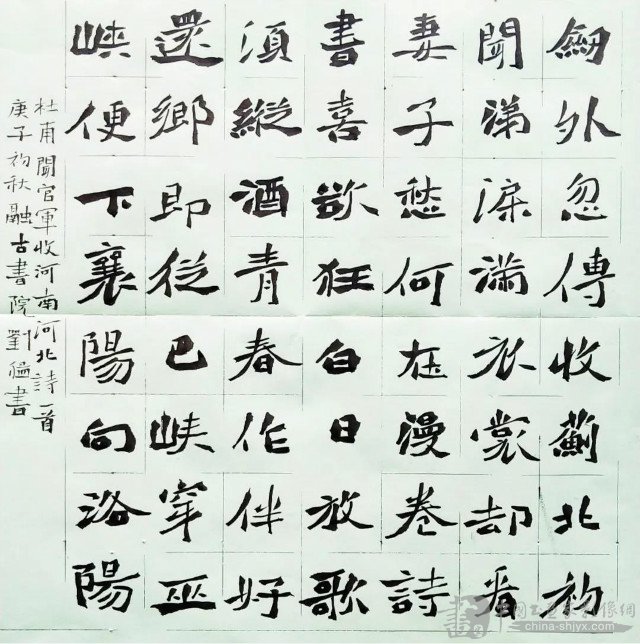 劒外忽傳收薊北初
聞涕淚滿衣裳却看
妻子愁何在漫卷詩
書喜欲狂白日放歌
須縱酒青春作伴好
還鄉即從巴峽穿巫
峽便下襄陽向洛陽
杜甫聞官軍收河南河北詩一首
庚子初秋融古書院劉書
china-shjyx.com